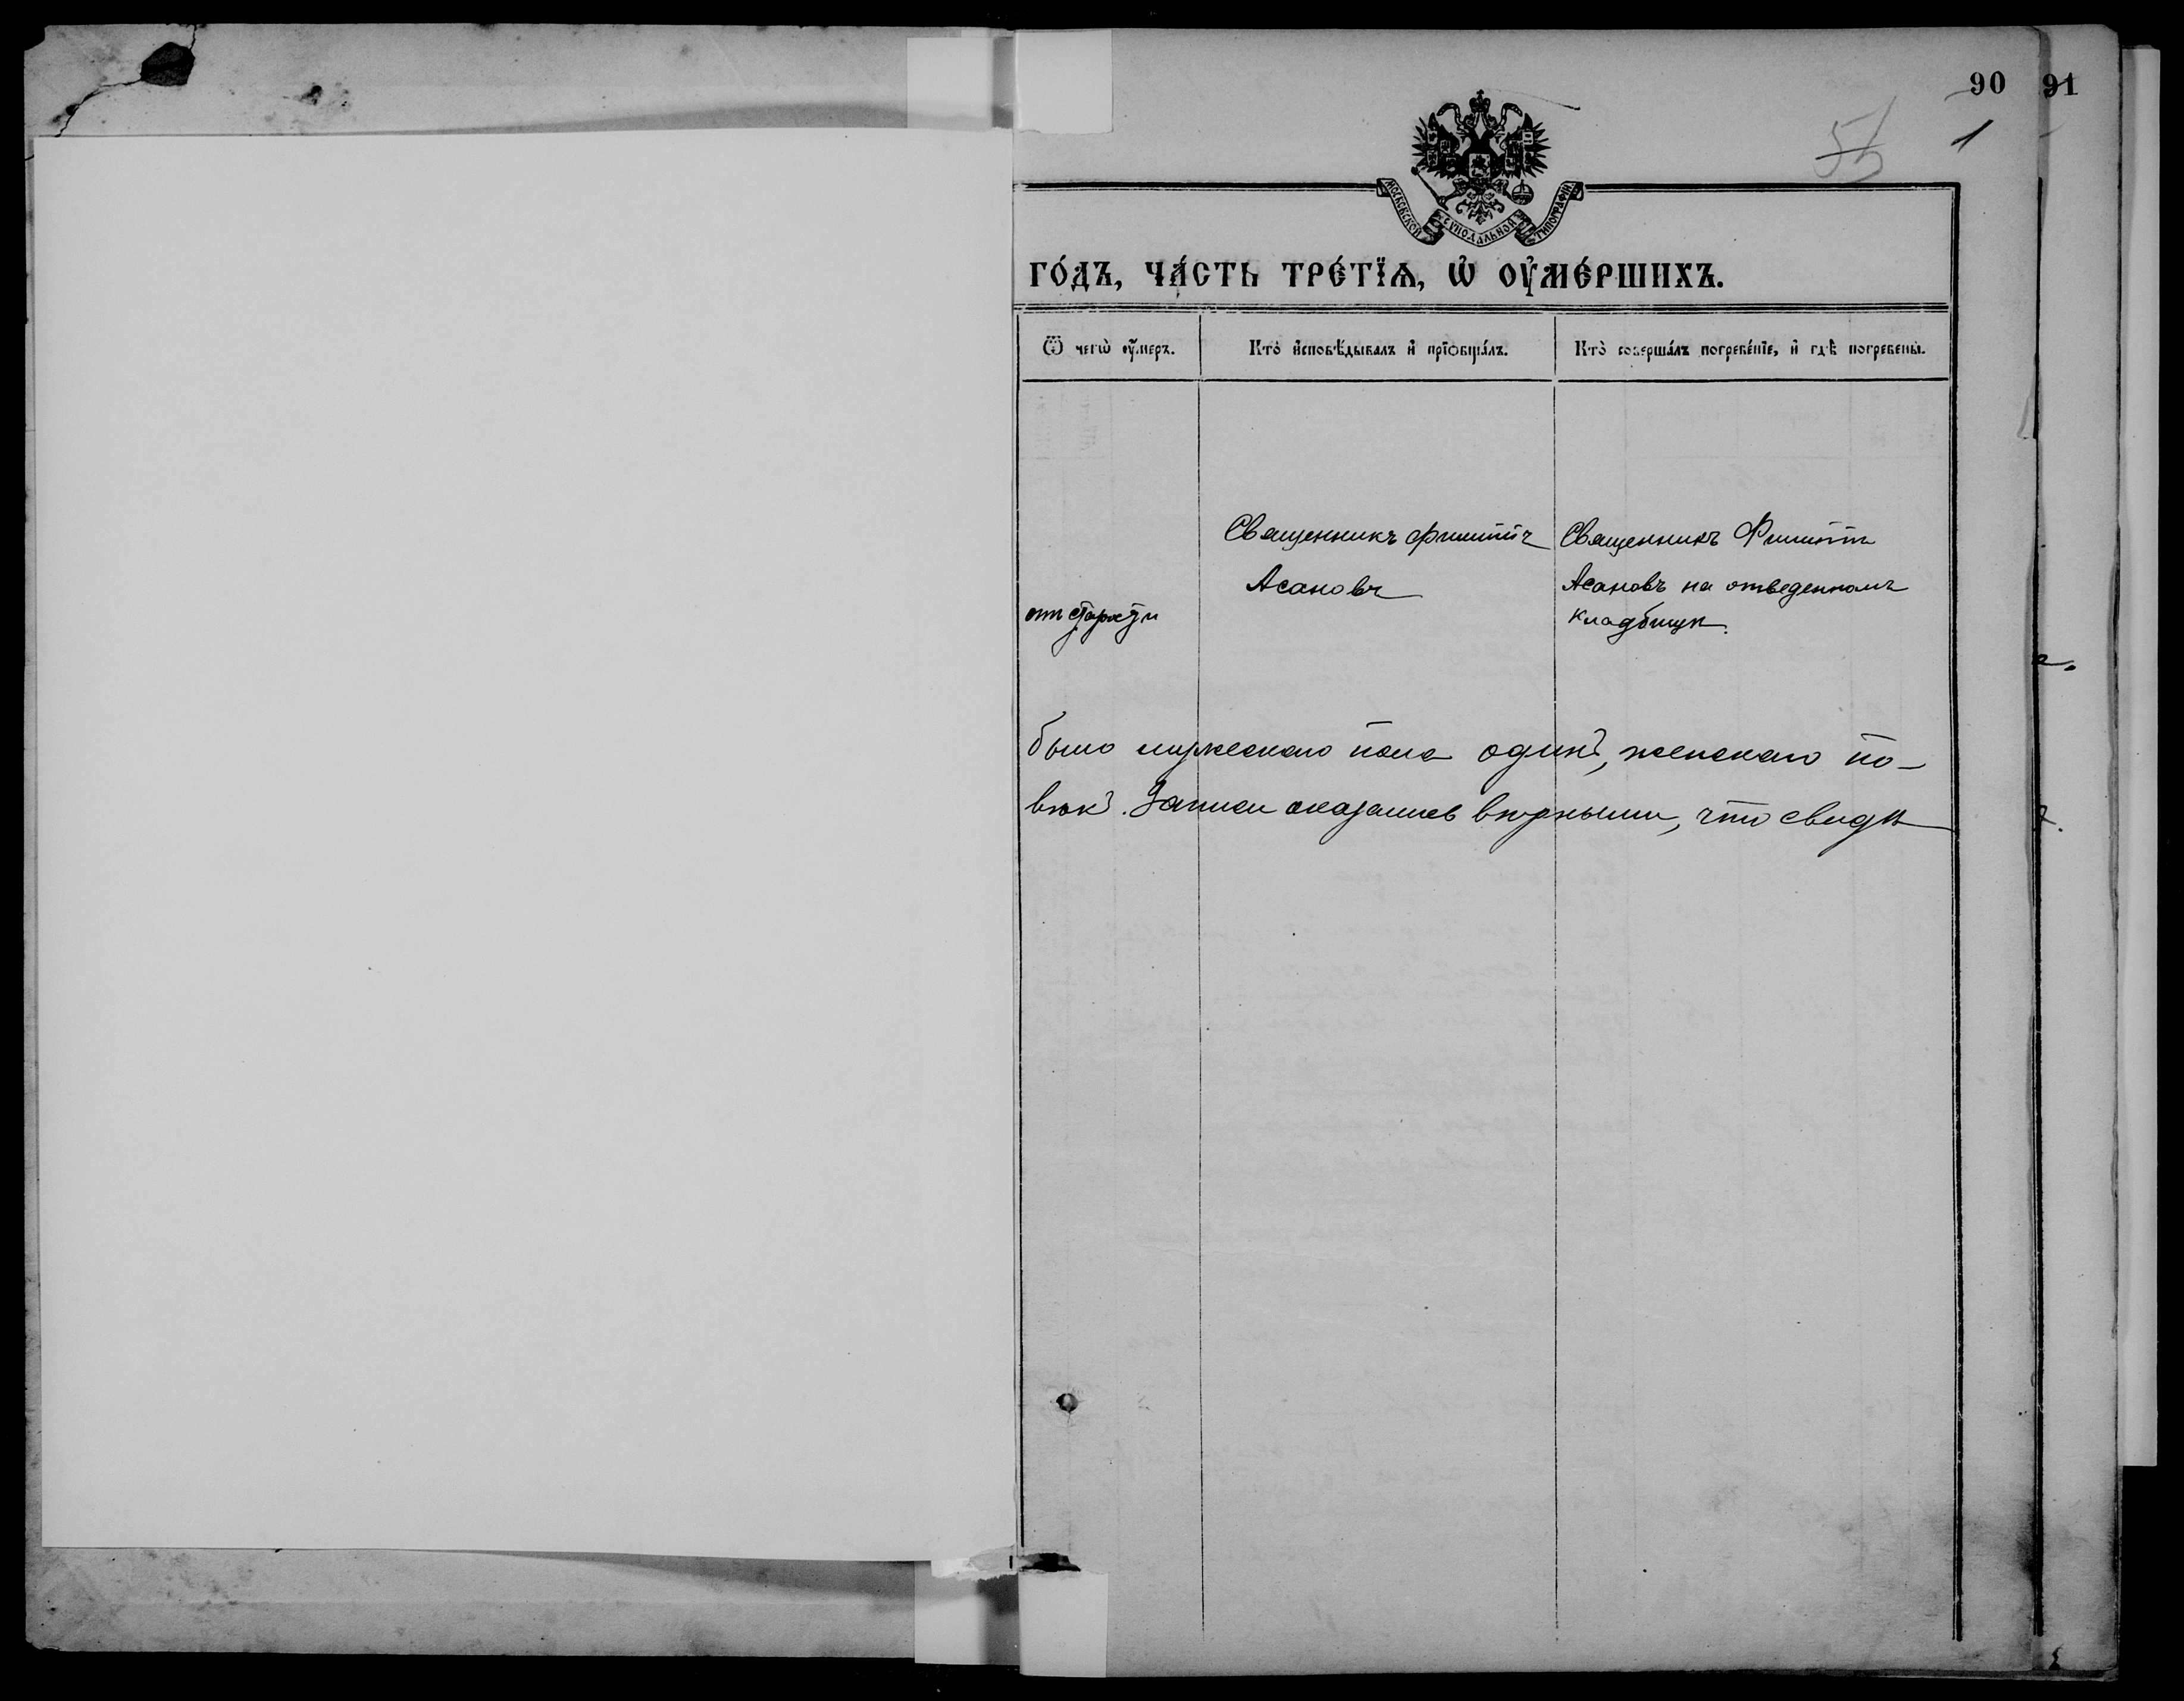 90 91
55 1
МОСКОВСКОЙ СѴНОДАЛЬНОЙ ТИПОГРАФІИ
ГО́ДЪ, ЧА́СТЬ ТРЕ́ТЇѦ, Ѡ҆ ОУ҆МЕ́РШИХЪ.
Ѿ чегѡ̀ оу҆́меръ.
Кто̀ и҆сповѣ́дывалъ и҆ прїѡбща́лъ.
Кто̀ соверша́лъ погребе́нїе, и҆ гдѣ̀ погребены̀.
отъ старости
Священникъ Филиппъ
Асановъ
Священникъ Филиппъ
Асановъ на отведенномъ
кладбищѣ.
было мужескаго пола одинъ, женскаго по-
вѣкъ. Записи оказались вѣрными, что свидѣ